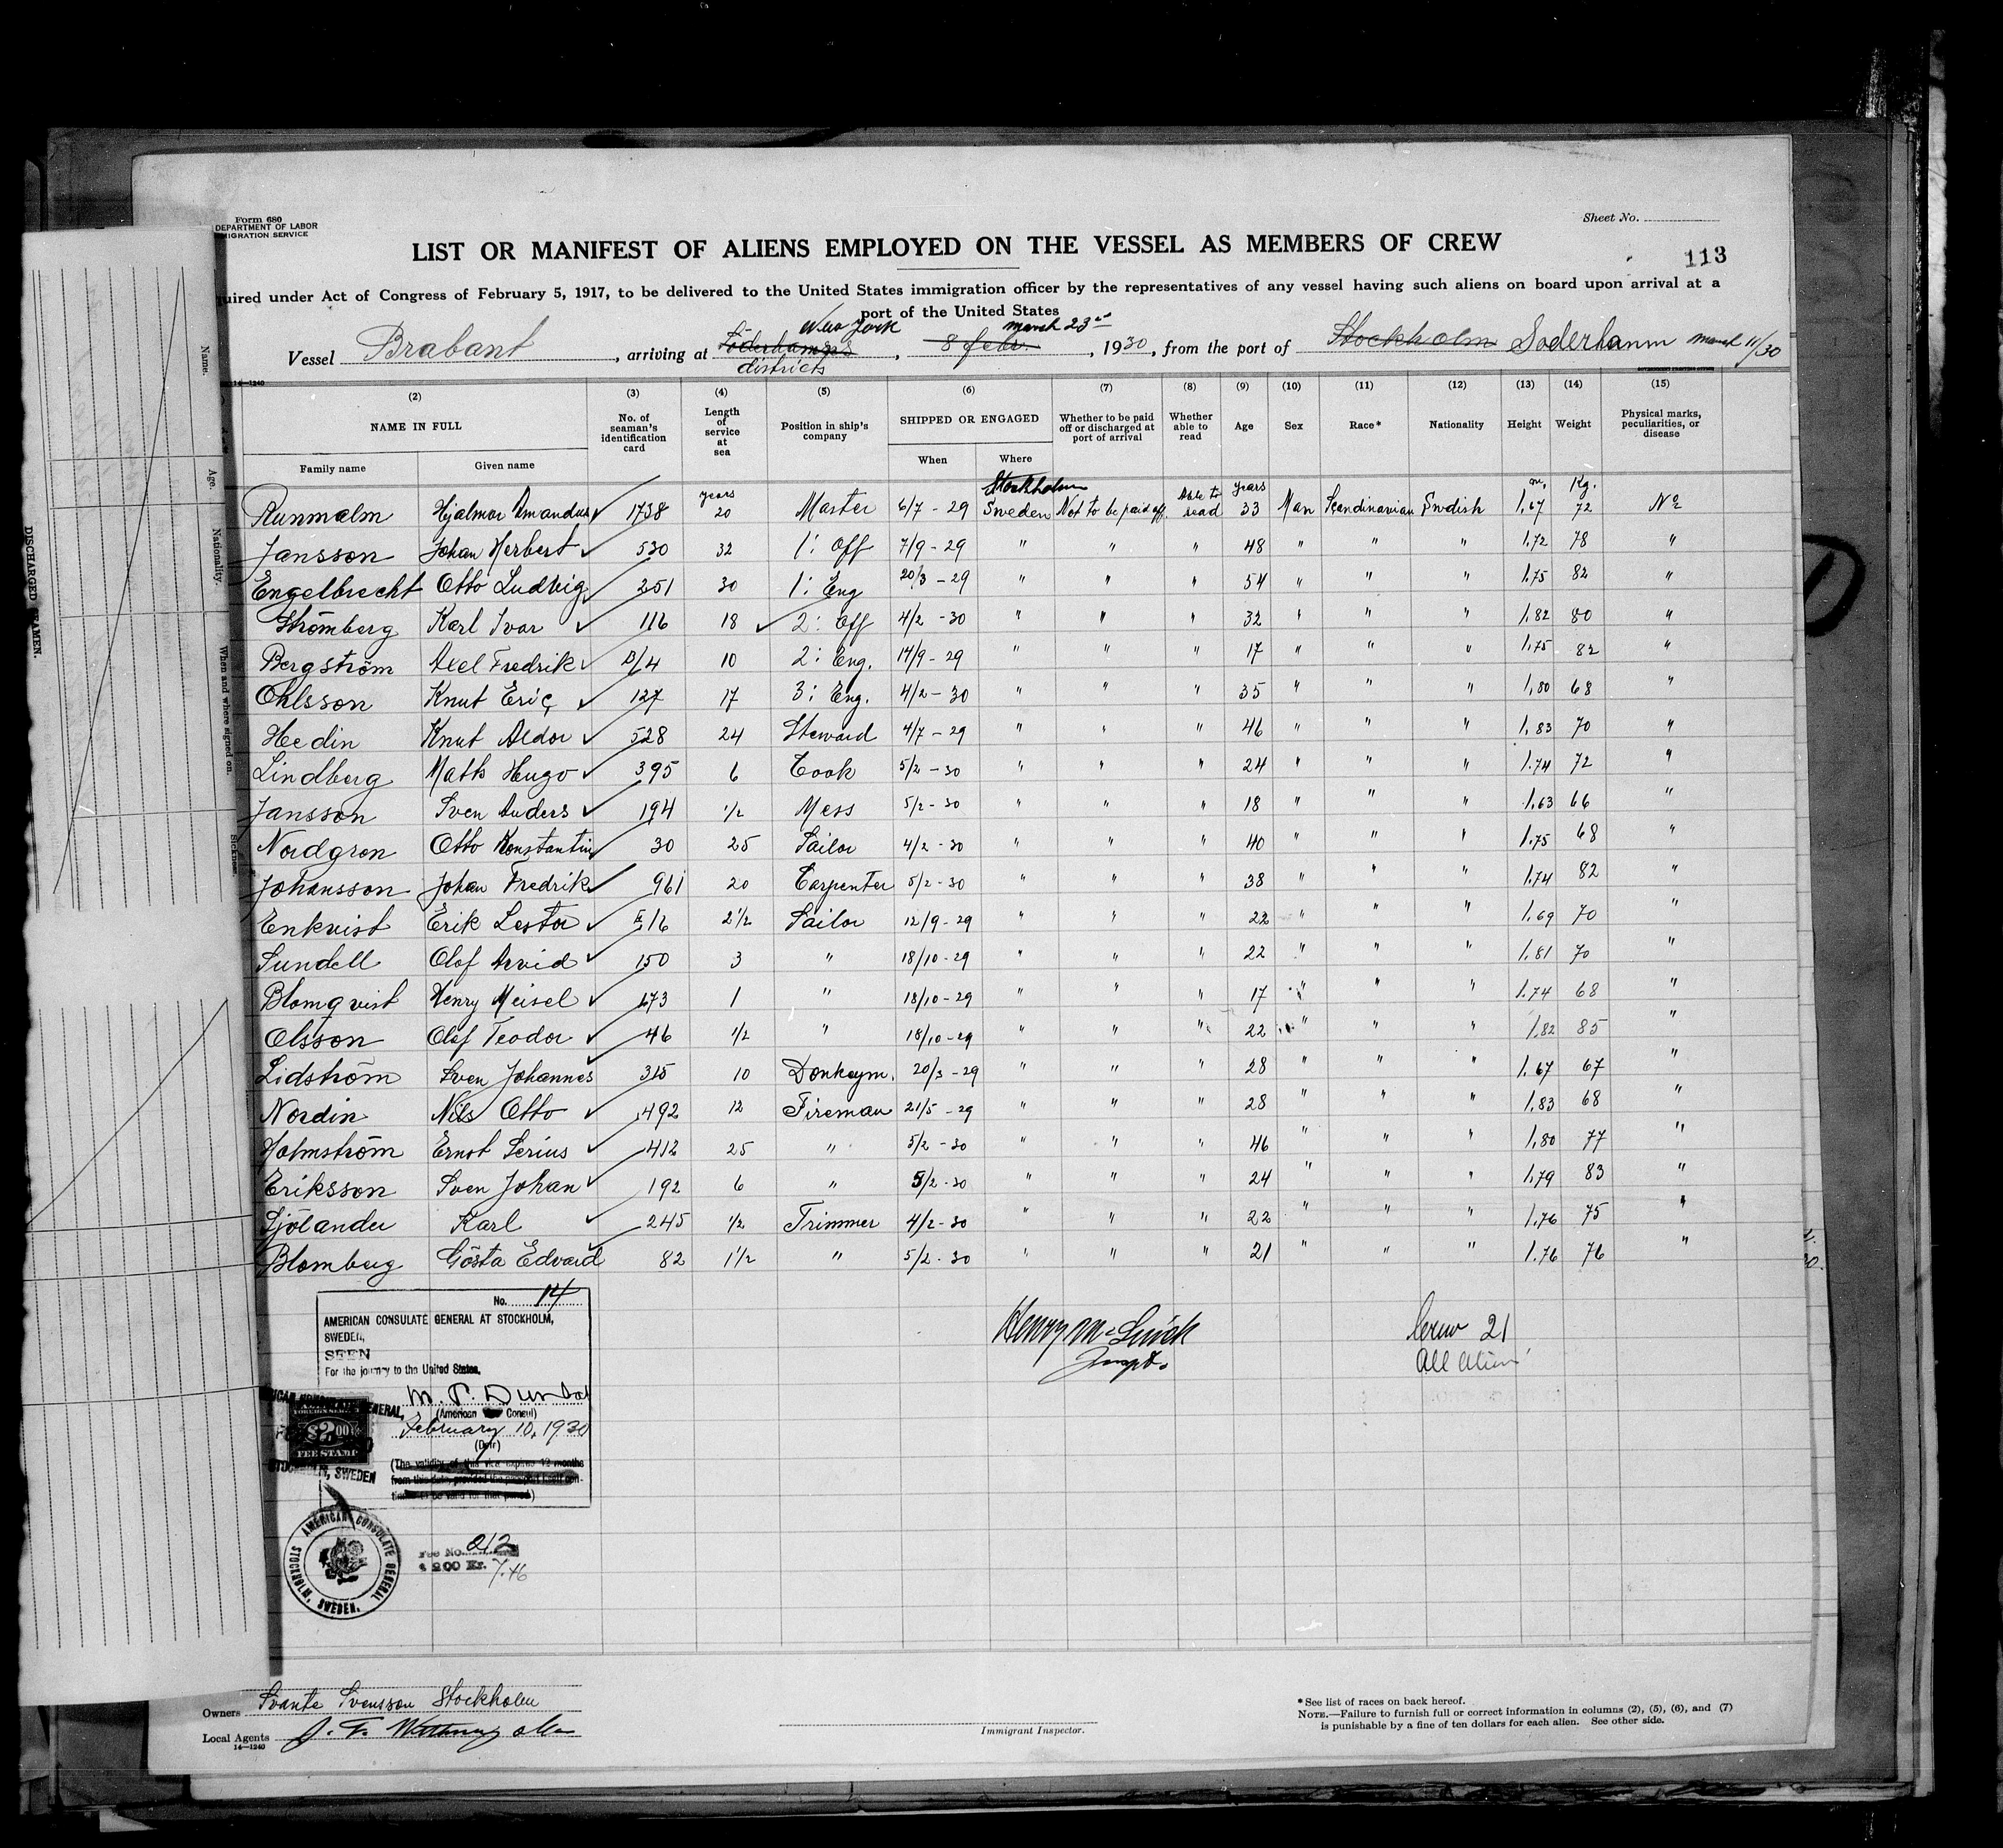 Form 680
DEPARTMENT OF LABOR
MIGRATION SERVICE
Sheet No.
LIST OR MANIFEST OF ALIENS EMPLOYED ON THE VESSEL AS MEMBERS OF CREW
113
uired under Act of Congress of February 5, 1917, to be delivered to the United States immigration officer by the representatives of any vessel having such aliens on board upon arrival at a
port of the United States
New York march 23rd
Vessel Brabant, arriving at Söderhamns districts, 8 febr., 1930, from the port of Stockholm Soderhamn march 11/30
14-1240
(2) (3) (4) (5) (6) (7) (8) (9) (10) (11) (12) (13) (14) (15)
NAME IN FULL No. of seaman's identification card Length of service at sea Position in ship's company SHIPPED OR ENGAGED Whether to be paid off or discharged at port of arrival Whether able to read Age Sex Race* Nationality Height Weight Physical marks, peculiarities, or disease
Family name Given name When Where
years Stockholm Able to years m. Kg.
Runmalm Hjalmar Amandus 1738 20 Master 6/7 - 29 Sweden Not to be paid off read 33 Man Scandinavian Swdish 1,67 72 No
Jansson Johan Herbert 530 32 1: Off 7/9 - 29 " " " 48 " " " 1.72 78 "
Engelbrecht Otto Ludvig 251 30 1: Eng 20/3 - 29 " " " 54 " " " 1.75 82 "
Strömberg Karl Ivar 116 18 2: Off 4/2 - 30 " " " 32 " " " 1,82 80 "
Bergström Axel Fredrik B/4 10 2: Eng. 17/9 - 29 " " " 17 " " " 1.75 82 "
Ohlsson Knut Eric 127 17 3: Eng. 4/2 - 30 " " " 35 " " " 1,80 68 "
Hedin Knut Aldor 528 24 Steward 4/7 - 29 " " " 46 " " " 1,83 70 "
Lindberg Mats Hugo 395 6 Cook 5/2 - 30 " " " 24 " " " 1.74 72 "
Jansson Sven Anders 194 1/2 Mess 5/2 - 30 " " " 18 " " " 1,63 66 "
Nordgren Otto Konstantin 30 25 Sailor 4/2 - 30 " " " 40 " " " 1.75 68 "
Johansson Johan Fredrik 961 20 Carpenter 5/2 - 30 " " " 38 " " " 1.74 82 "
Enkvist Erik Lestor E/16 2 1/2 Sailor 12/9 - 29 " " " 22 " " " 1,69 70 "
Sundell Olof Arvid 150 3 " 18/10 - 29 " " " 22 " " " 1,81 70 "
Blomqvist Henry Meisel 173 1 " 18/10 - 29 " " " 17 " " " 1.74 68 "
Olsson Olof Teodor 46 1/2 " 18/10 - 29 " " " 22 " " " 1,82 85 "
Lidström Sven Johannes 315 10 Donkeym. 20/3 - 29 " " " 28 " " " 1,67 67 "
Nordin Nils Otto 492 12 Fireman 21/5 - 29 " " " 28 " " " 1,83 68 "
Holmström Ernst Serius 412 25 " 5/2 - 30 " " " 46 " " " 1,80 77 "
Eriksson Sven Johan 192 6 " 5/2 - 30 " " " 24 " " " 1,79 83 "
Sjölander Karl 245 1/2 Trimmer 4/2 - 30 " " " 22 " " " 1,76 75 "
Blomberg Gösta Edvard 82 1 1/2 " 5/2 - 30 " " " 21 " " " 1.76 76 "
No. 14
AMERICAN CONSULATE GENERAL AT STOCKHOLM,
SWEDEN,
SEEN
For the journey to the United States.
(American Consul)
February 10, 1930
(Date)
(The validity of this visa expires 12 months
$2.00
FEE STAMP
STOCKHOLM, SWEDEN
AMERICAN CONSULATE GENERAL STOCKHOLM, SWEDEN.
Fee No. 212
$ 2.00 Kr. 7.46
Crew 21
All Aliens
Owners Svante Svensson Stockholm
Local Agents
14-1240
Immigrant Inspector.
*See list of races on back hereof.
NOTE.—Failure to furnish full or correct information in columns (2), (5), (6), and (7)
is punishable by a fine of ten dollars for each alien. See other side.
Name.
Age.
Nationality.
When and where signed on.
DISCHARGED